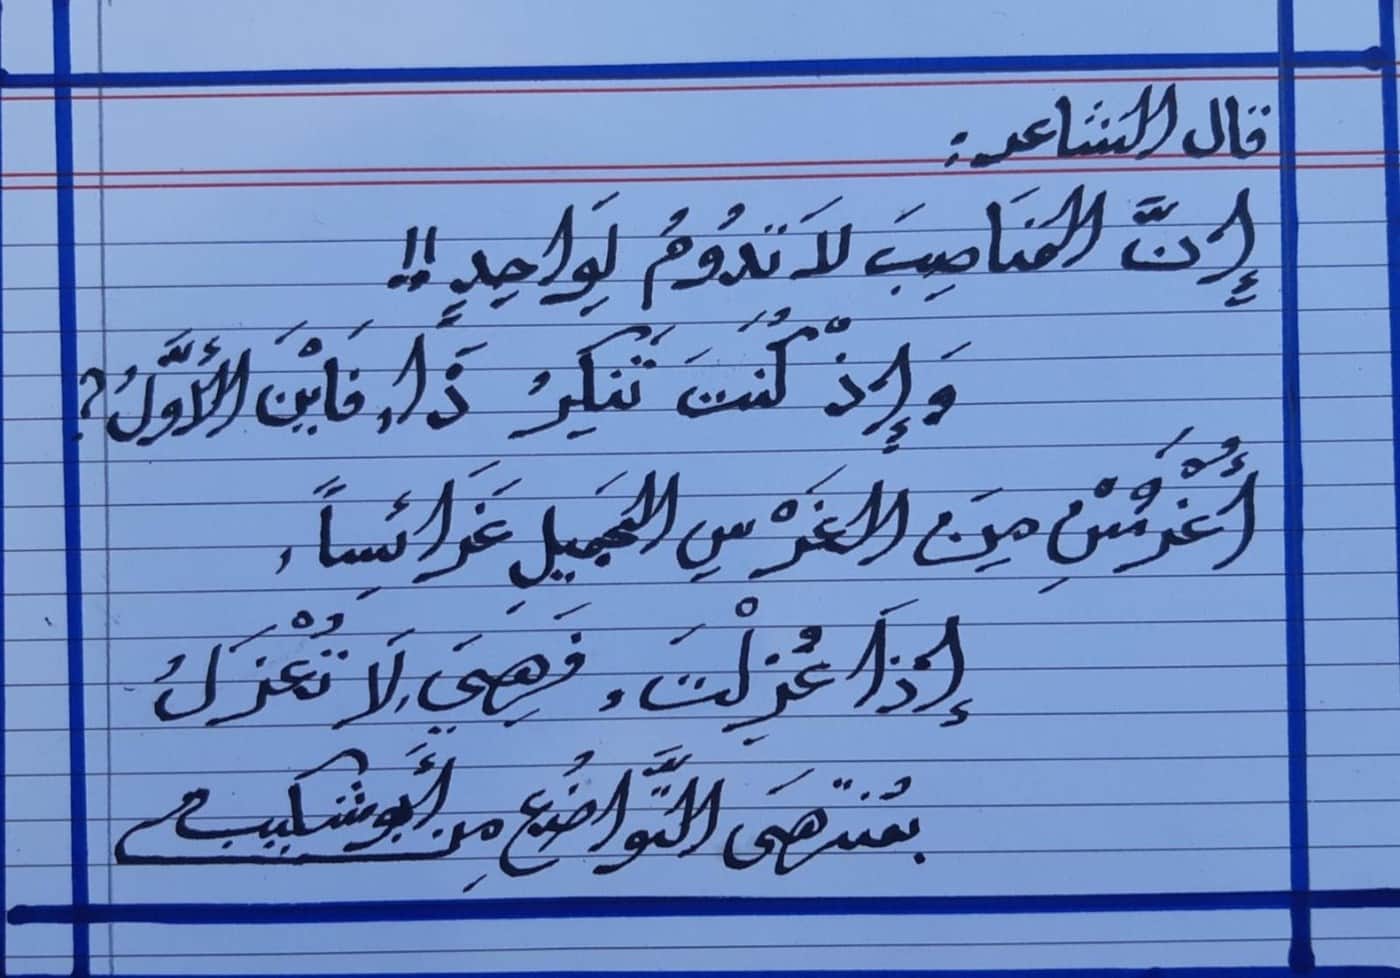 قال الشاعر:
إِنَّ المَنَاصِبَ لَا تَدُوْمُ لِوَاحِدٍ !!
وَإِذْ كُنْتَ تُنْكِرُ ذَا، فَأَيْنَ الأَوَّلُ؟
أُغْرُسْ مِنَ الغَرْسِ الجَمِيلِ غَرَائِساً،
إِذَا عُزِلْتَ، فَهِيَ لَا تُعْزَلُ
بمُنتهَى التَّواضُع مِن أَبُو شكيب